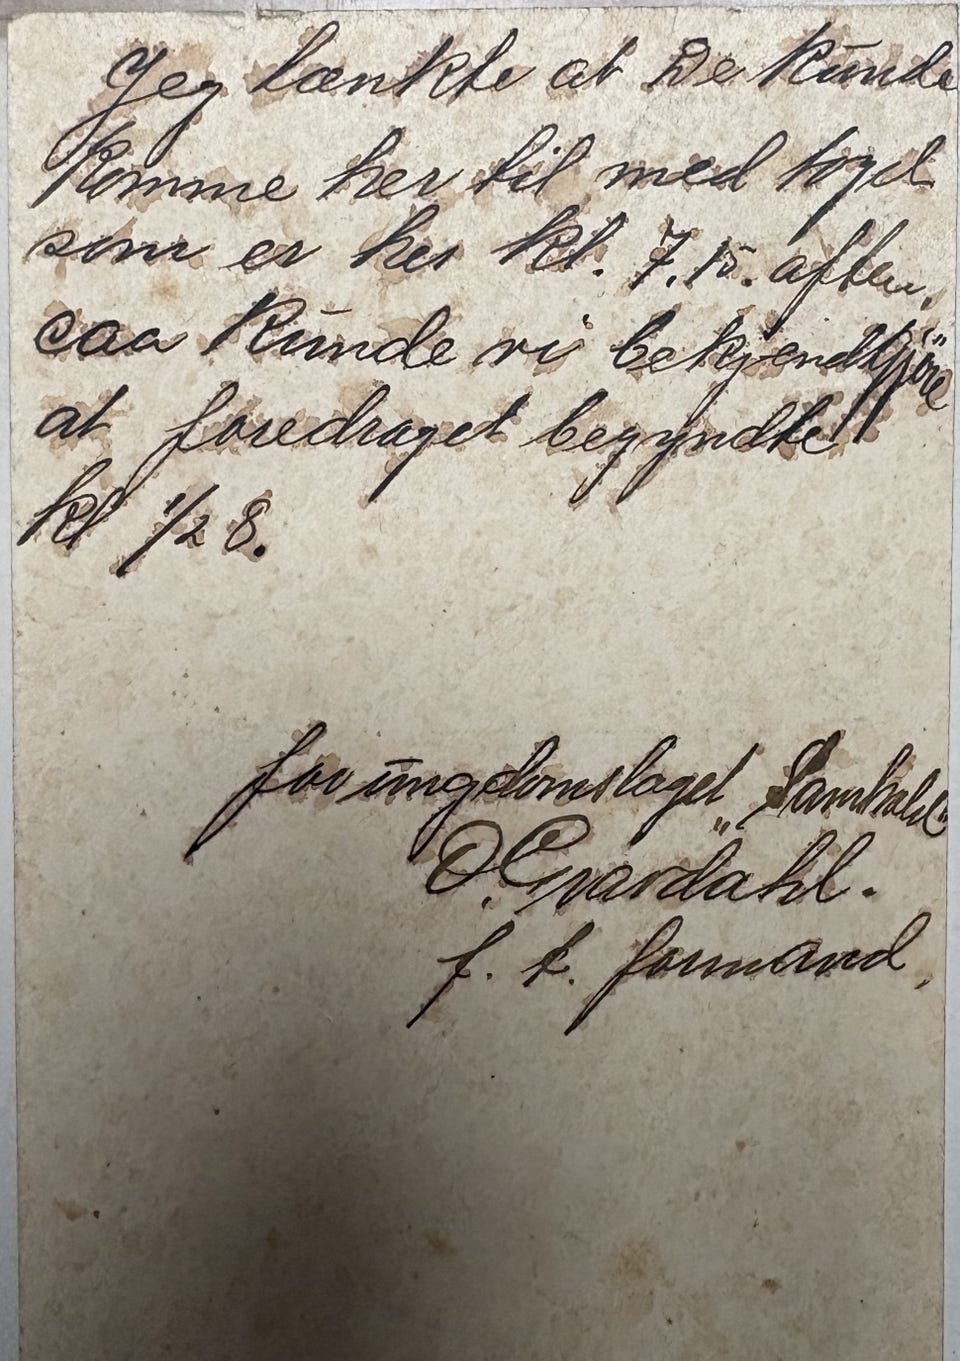 Jeg tænkte at De kunde
komme her til med togd
som er her kl. 7.15. aften,
saa kunde vi bekjendtgjöre
at foredraget begyndte
kl 1/2 8.
for ungdomslaget „Samhold"
O. Evardahl.
f. t. formand,